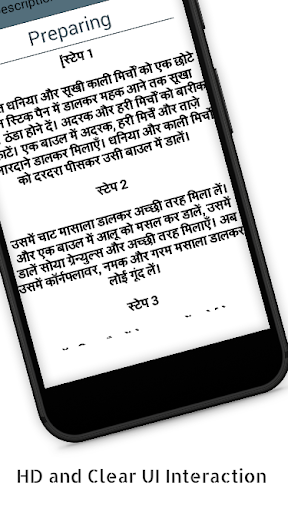 escription
Preparing
[स्टेप 1
धनिया और सूखी काली मिर्चों को एक छोटे
स्टिक पैन में डालकर महक आने तक सूखा
ठंडा होने दें। अदरक और हरी मिर्चों को बारीक
काटें। एक बाउल में अदरक, हरी मिर्चें और ताज़े
डालकर मिलाएँ। धनिया और काली मिर्चों
को दरदरा पीसकर उसी बाउल में डालें।
स्टेप 2
उसमें चाट मासाला डालकर अच्छी तरह मिला लें।
और एक बाउल में आलू को मसल कर डालें, उसमें
डालें सोया ग्रेन्युल्स और अच्छी तरह मिलाएँ। अब
उसमें कॉर्नफ्लावर, नमक और गरम मसाला डालकर
लोई गूंद लें।
स्टेप 3
HD and Clear UI Interaction